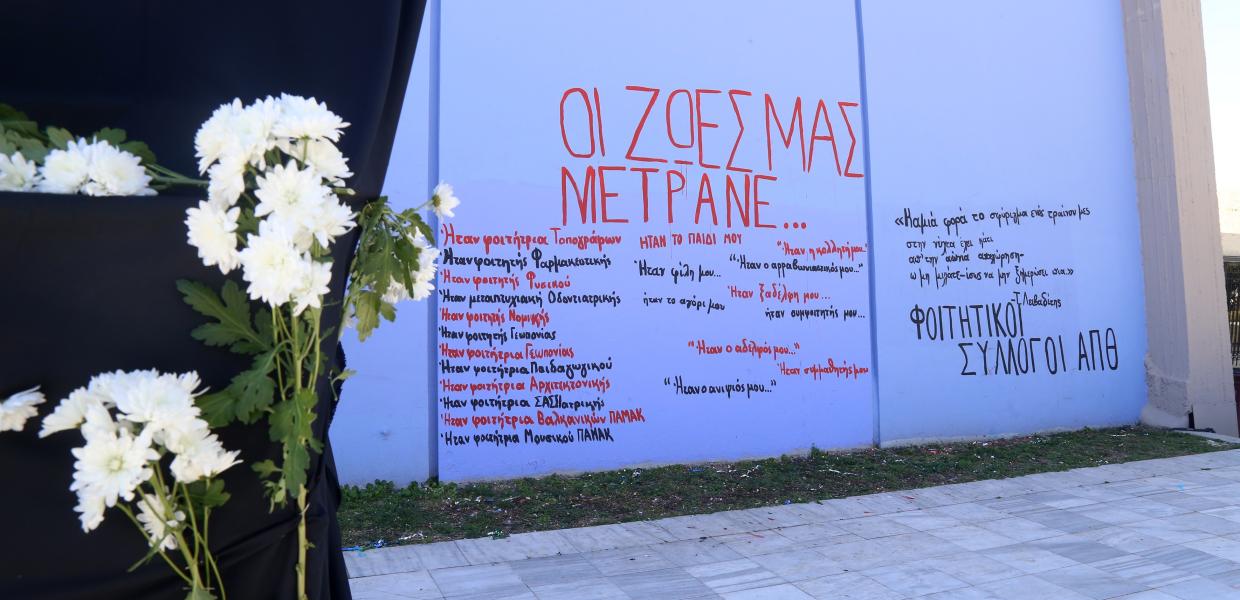 ΟΙ ΖΩΕΣ ΜΑΣ
ΜΕΤΡΑΝΕ...
Ήταν φοιτήτρια Τοπογράφων
Ήταν φοιτητής Φαρμακευτικής
Ήταν φοιτήτρια Φυσικού
Ήταν μεταπτυχιακή Οδοντιατρικής
Ήταν φοιτητής Νομικής
Ήταν φοιτητής Γεωπονίας
Ήταν φοιτήτρια Γεωπονίας
Ήταν φοιτήτρια Παιδαγωγικού
Ήταν φοιτήτρια Αρχιτεκτονικής
Ήταν φοιτητής ΣΑΣ Ιατρικής
Ήταν φοιτήτρια Βαλκανικών ΠΑΜΑΚ
Ήταν φοιτήτρια Μουσικού ΠΑΜΑΚ
ΗΤΑΝ ΤΟ ΠΑΙΔΙ ΜΟΥ
"Ήταν η κολλητή μου"
Ήταν φίλη μου...
"Ήταν ο αρραβωνιαστικός μου..."
Ήταν ξαδέλφη μου...
ήταν το αγόρι μου
ήταν συμφοιτητής μου...
"Ήταν ο αδελφός μου..."
Ήταν συμμαθητής μου
"Ήταν ο ανιψιός μου..."
«Καμιά φορά το σφύριγμα ενός τραίνου μες
στην νύχτα έχει κάτι
απ' την αιώνια αποχώρηση-
ω μη μιλάτε-ίσως να μην ξημερώσει πια.»
Τ. Λειβαδίτης
ΦΟΙΤΗΤΙΚΟΙ
ΣΥΛΛΟΓΟΙ ΑΠΘ